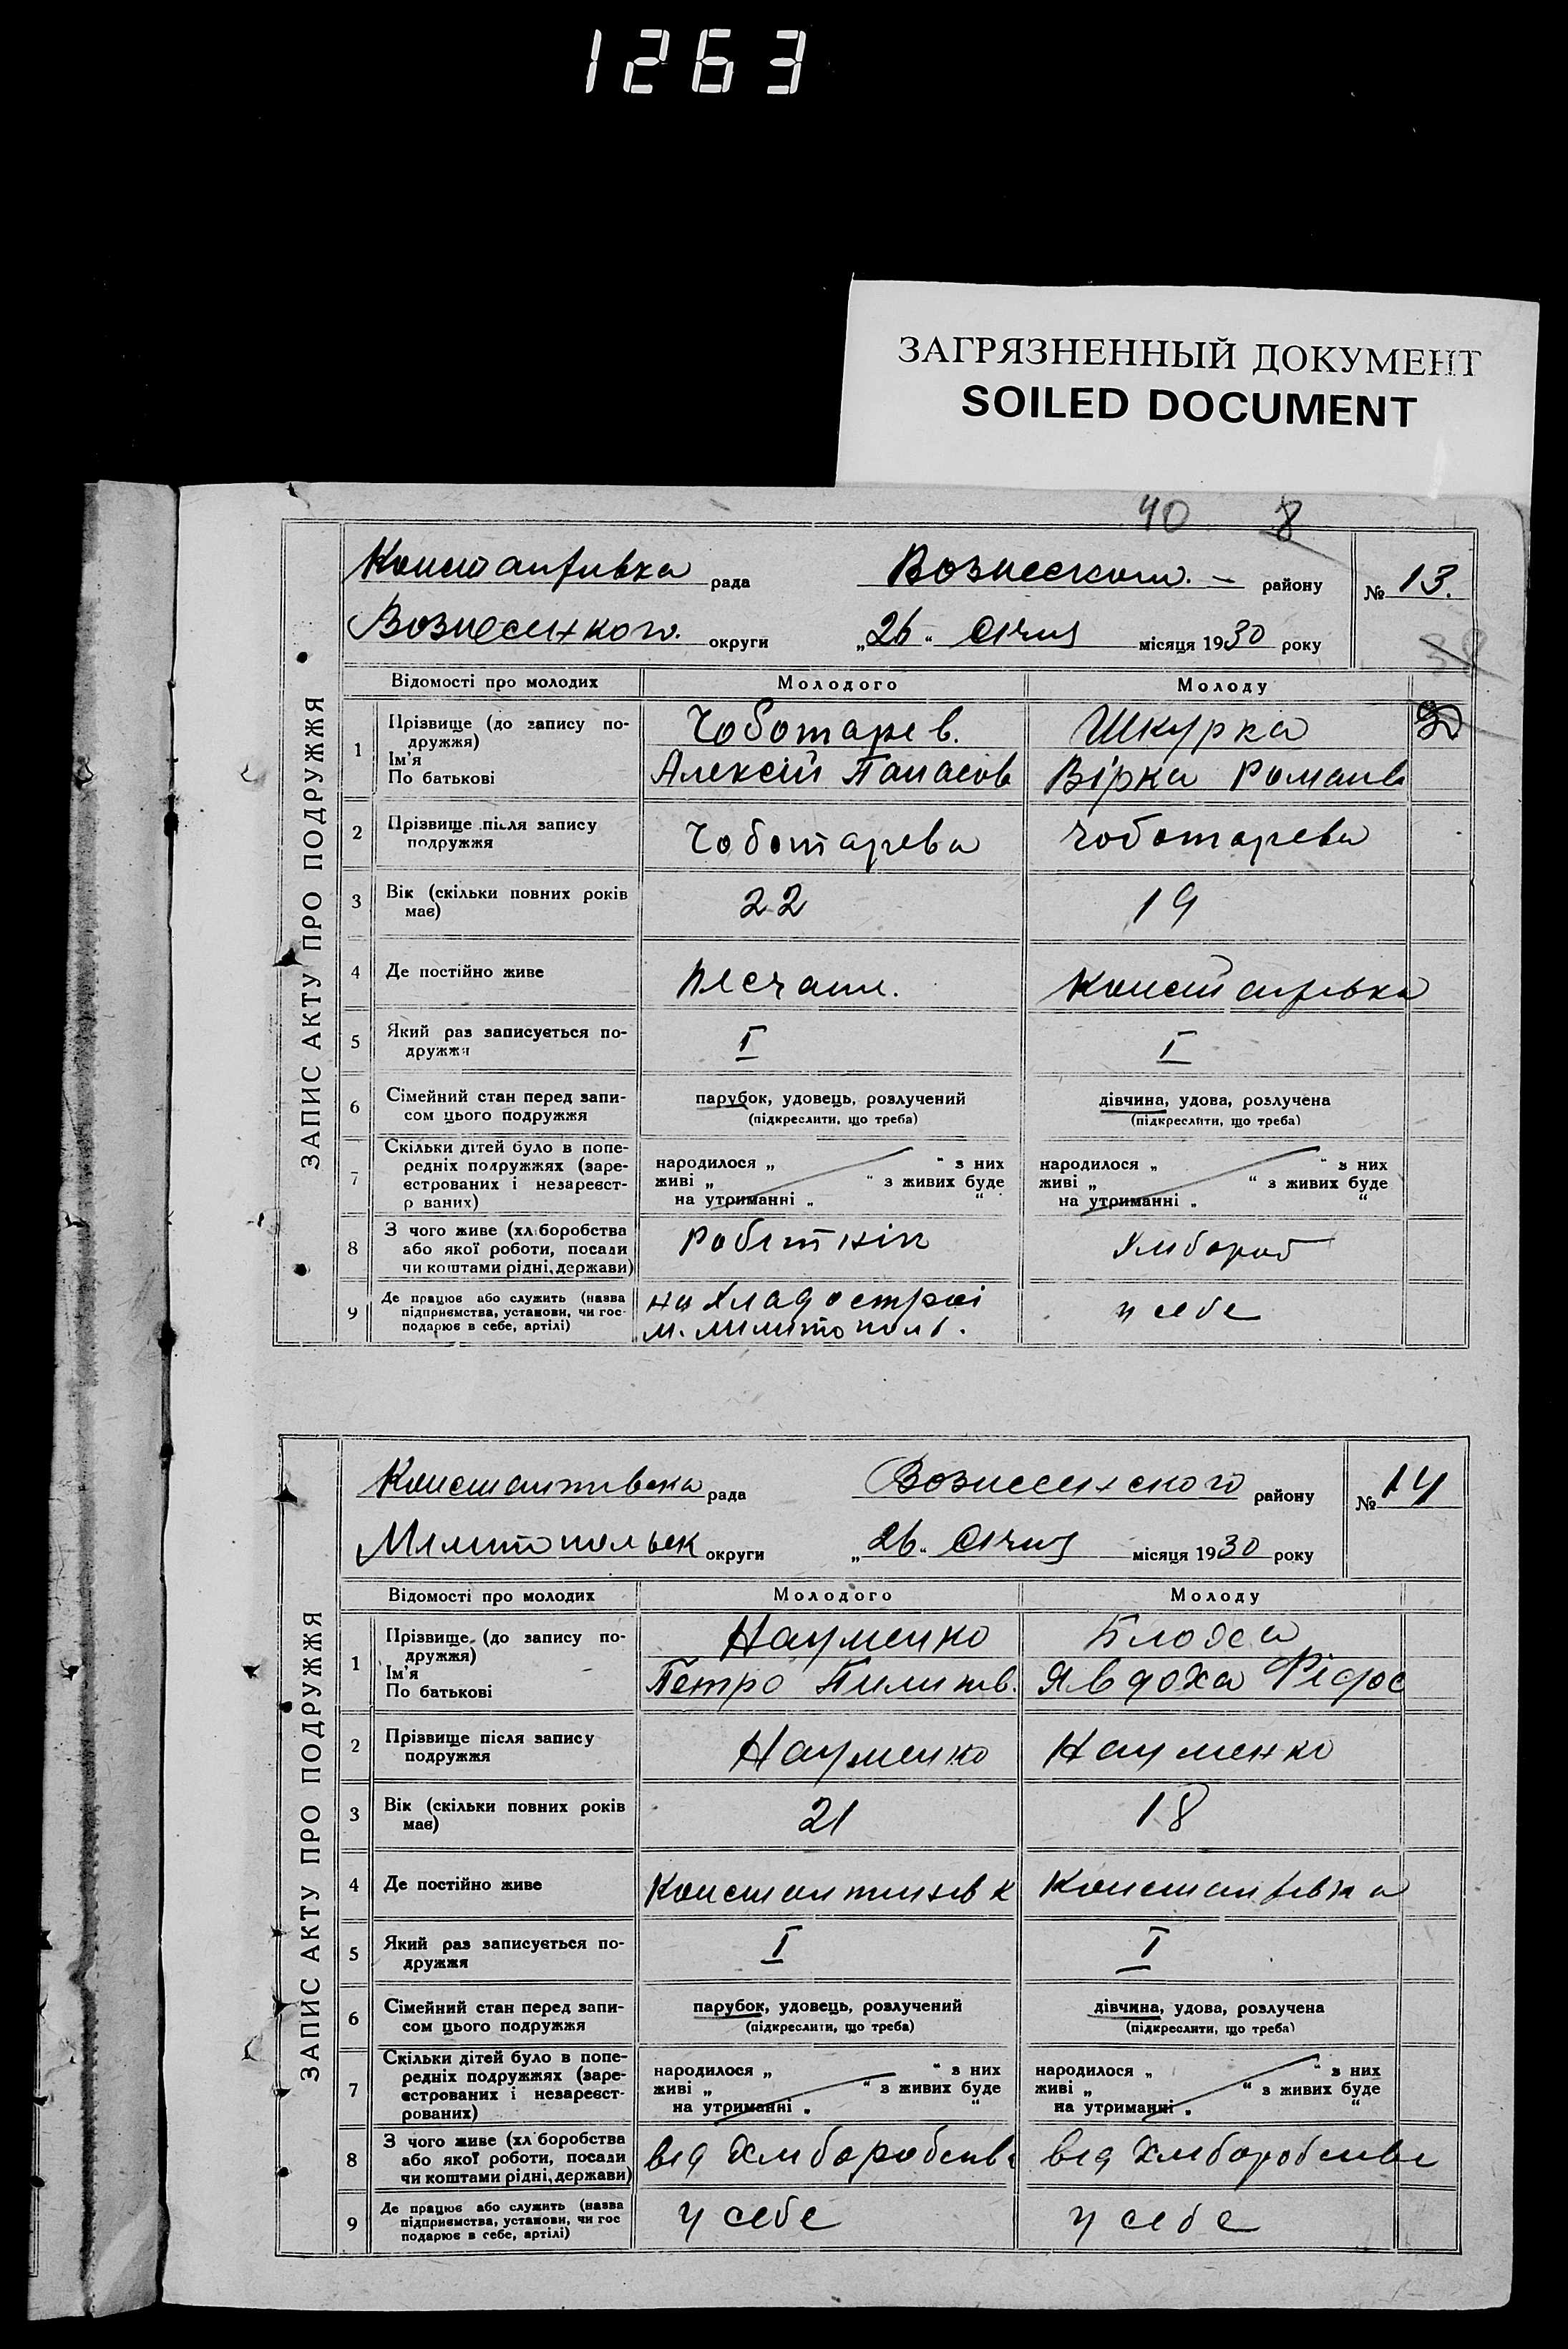 1263
ЗАГРЯЗНЕННЫЙ ДОКУМЕНТ
SOILED DOCUMENT
40 8
ЗАПИС АКТУ ПРО ПОДРУЖЖЯ
рада району № 13.
округи „26“ Січня місяця 1930 року
38
Відомості про молодих Молодого Молоду
1 Прізвище (до запису по-
дружжя) Чоботарев. Шкурка
Ім'я
По батькові Алексій Панасов Вірка Романв
2 Прізвище після запису
подружжя Чоботарева Чоботарева
3 Вік (скільки повних років
має) 22 19
4 Де постійно живе Песчан.
5 Який раз записується по-
дружжя I I
6 Сімейний стан перед запи-
сом цього подружжя парубок, удовець, розлучений дівчина, удова, розлучена
(підкреслити, що треба) (підкреслити, що треба)
7 Скільки дітей було в попе-
редніх подружжях (заре-
єстрованих і незареєст-
р ваних)
народилося „ “ з них народилося „ “ з них
живі „ “ з живих буде живі „ “ з живих буде
на утриманні „ “ на утриманні „ “
8 З чого живе (хліборобства
або якої роботи, посади
чи коштами рідні, держави) Хлібороб
9 Де працює або служить (назва
підприємства, установи, чи гос-
подарює в себе, артілі) у себе
ЗАПИС АКТУ ПРО ПОДРУЖЖЯ
рада району № 14
округи „26“ Січня місяця 1930 року
Відомості про молодих Молодого Молоду
1 Прізвище (до запису по-
дружжя) Науменко Блоха
Ім'я
По батькові Петро Пилипов. Явдоха Фідос
2 Прізвище після запису
подружжя Науменко Науменко
3 Вік (скільки повних років
має) 21 18
4 Де постійно живе
5 Який раз записується по-
дружжя I I
6 Сімейний стан перед запи-
сом цього подружжя парубок, удовець, розлучений дівчина, удова, розлучена
(підкреслити, що треба) (підкреслити, що треба)
7 Скільки дітей було в попе-
редніх подружжях (заре-
єстрованих і незареєст-
рованих)
народилося „ “ з них народилося „ “ з них
живі „ “ з живих буде живі „ “ з живих буде
на утриманні „ “ на утриманні „ “
8 З чого живе (хл боробства
або якої роботи, посади
чи коштами рідні, держави) від Хліборобств від Хліборобства
9 Де працює або служить (назва
підприємства, установи, чи гос
подарює в себе, артілі) у себе у себе